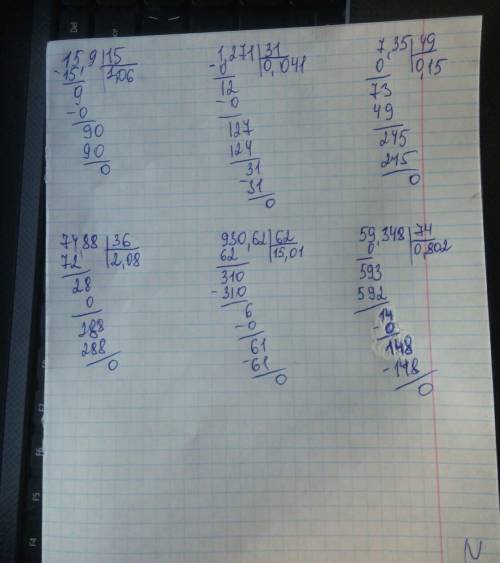 15,9 | 15
-15, | 1,06
9
-0
90
90
0
1,271 | 31
-0 | 0,041
12
-0
127
124
31
-31
0
7,35 | 49
0 | 0,15
73
49
245
245
0
74,88 | 36
72 | 2,08
28
0
288
288
0
930,62 | 62
62 | 15,01
310
-310
6
-0
61
-61
0
59,348 | 74
0 | 0,802
593
592
14
-0
148
-148
0
N
Del
F7
F6
F5
F4